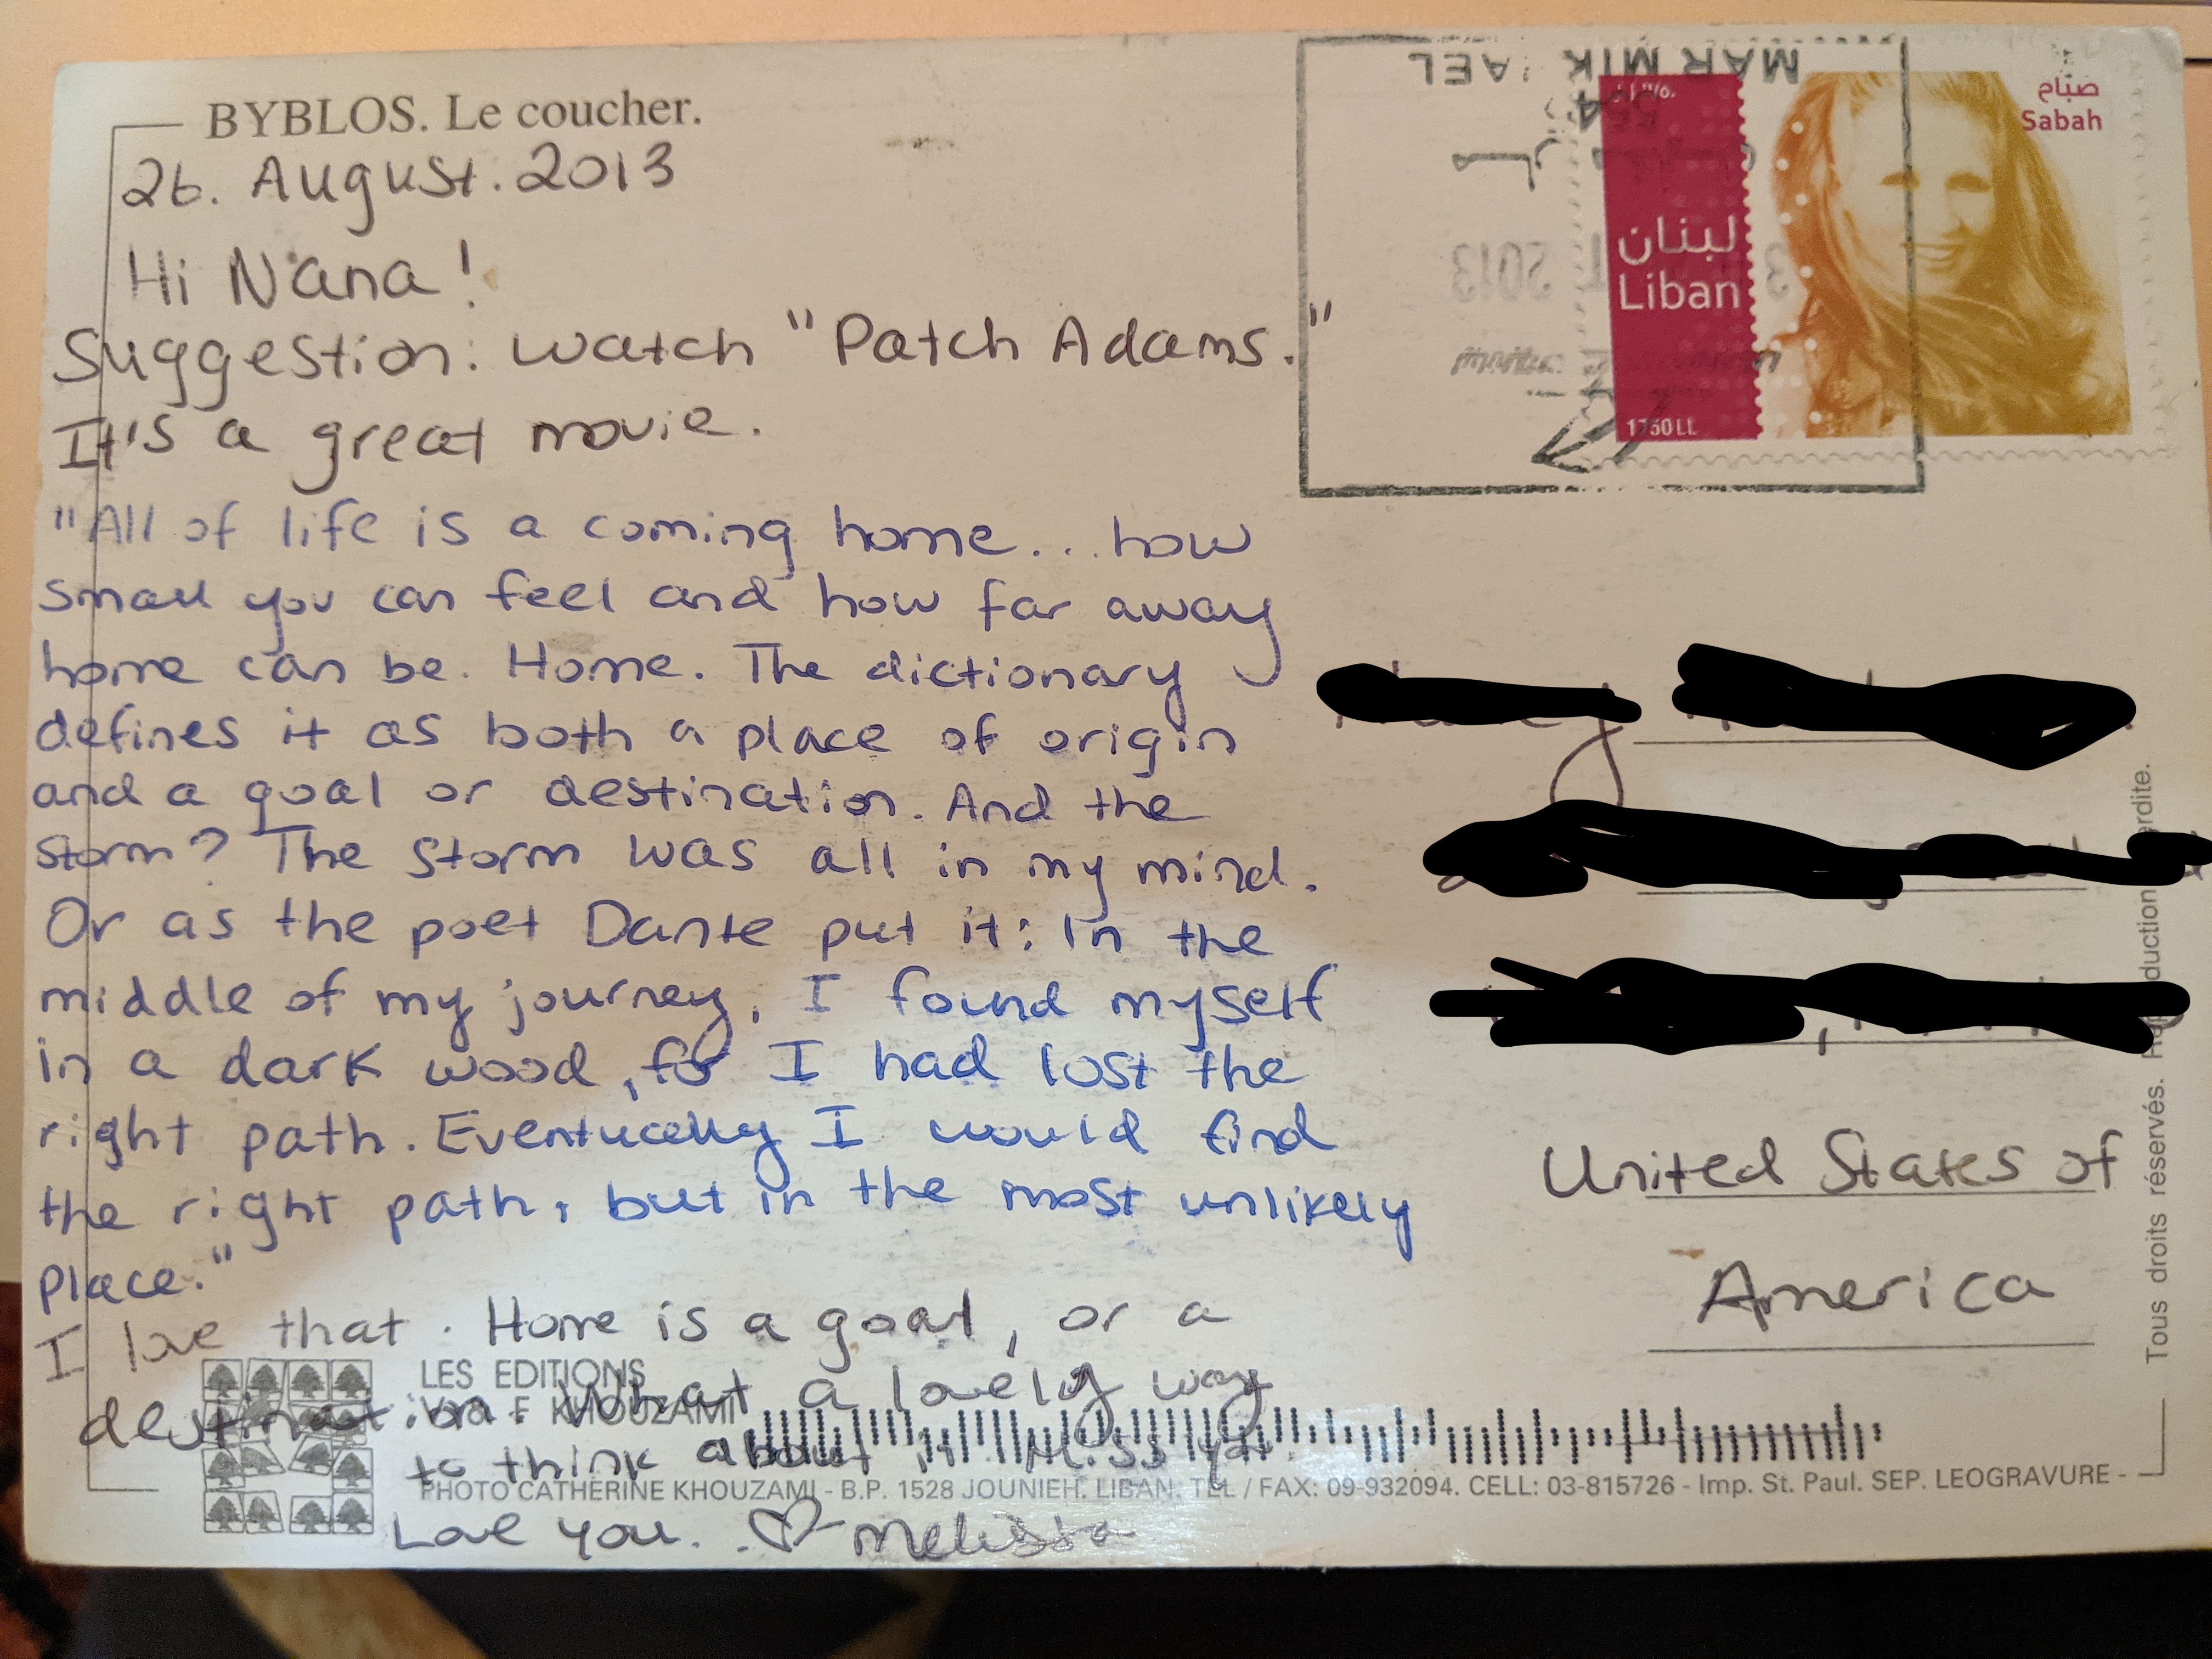 BYBLOS. Le coucher.
26. August. 2013
Hi Nana!
Suggestion: watch "Patch Adams."
It's a great movie.
"All of life is a coming home... how
small you can feel and how far away
home can be. Home. The dictionary
defines it as both a place of origin
and a goal or destination. And the
storm? The storm was all in my mind.
Or as the poet Dante put it: In the
middle of my journey, I found myself
in a dark wood, for I had lost the
right path. Eventually I would find
the right path, but in the most unlikely
place."
I love that. Home is a goal, or a
destination. What a lovely way
to think about it. Miss you.
Love you. ♡ - Melissa
MAR MIK AEL
2013
صباح
Sabah
لبنان
Liban
1750 LL
United States of
America
LES EDITIONS
KHOUZAMI
PHOTO CATHERINE KHOUZAMI - B.P. 1528 JOUNIEH. LIBAN. TEL / FAX: 09-932094. CELL: 03-815726 - Imp. St. Paul. SEP. LEOGRAVURE -
Tous droits réservés.